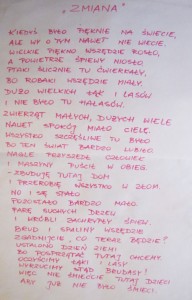 "ZMIANA"
KIEDYŚ BYŁO PIĘKNIE NA ŚWIECIE,
ALE WY O TYM NAWET NIE WIECIE.
WIELKIE PIĘKNO WSZĘDZIE ROSŁO,
A POWIETRZE ŚPIEWY NIOSŁO,
PTAKI ŚLICZNIE TU ĆWIERKAŁY,
BO ROBAKI WSZĘDZIE MIAŁY.
DUŻO WIELKICH ŁĄK I LASÓW
I NIE BYŁO TU HAŁASÓW.
ZWIERZĄT MAŁYCH, DUŻYCH WIELE
NAWET SPOKÓJ MIAŁO CIELĘ.
WSZYSTKO SZCZĘŚLIWE TU BYŁO
BO TEN ŚWIAT BARDZO LUBIŁO.
NAGLE PRZYSZEDŁ CZŁOWIEK
I MASZYNY PUŚCIŁ W OBIEG
- ZBUDUJĘ TUTAJ DOM
I PRZEROBIĘ WSZYSTKO W ZŁOM.
NO I SIĘ STAŁO
POZOSTAŁO BARDZO MAŁO.
PARĘ SUCHYCH DRZEW
I WRÓBLI ZACHRYPŁY ŚPIEW.
BRUD I SPALINY WSZĘDZIE
ZGADNIJCIE, CO TERAZ BĘDZIE?
USTALONO DZIEŃ ZIEMI
BO POSPRZĄTAĆ TUTAJ CHCEMY.
OCZYŚCIMY ŁĄKI I LASY
WYRZUCIMY STĄD BRUDASY!
WIĘC NIE ŚMIEĆCIE TUTAJ DZIECI
ABY JUŻ NIE BYŁO ŚMIECI.